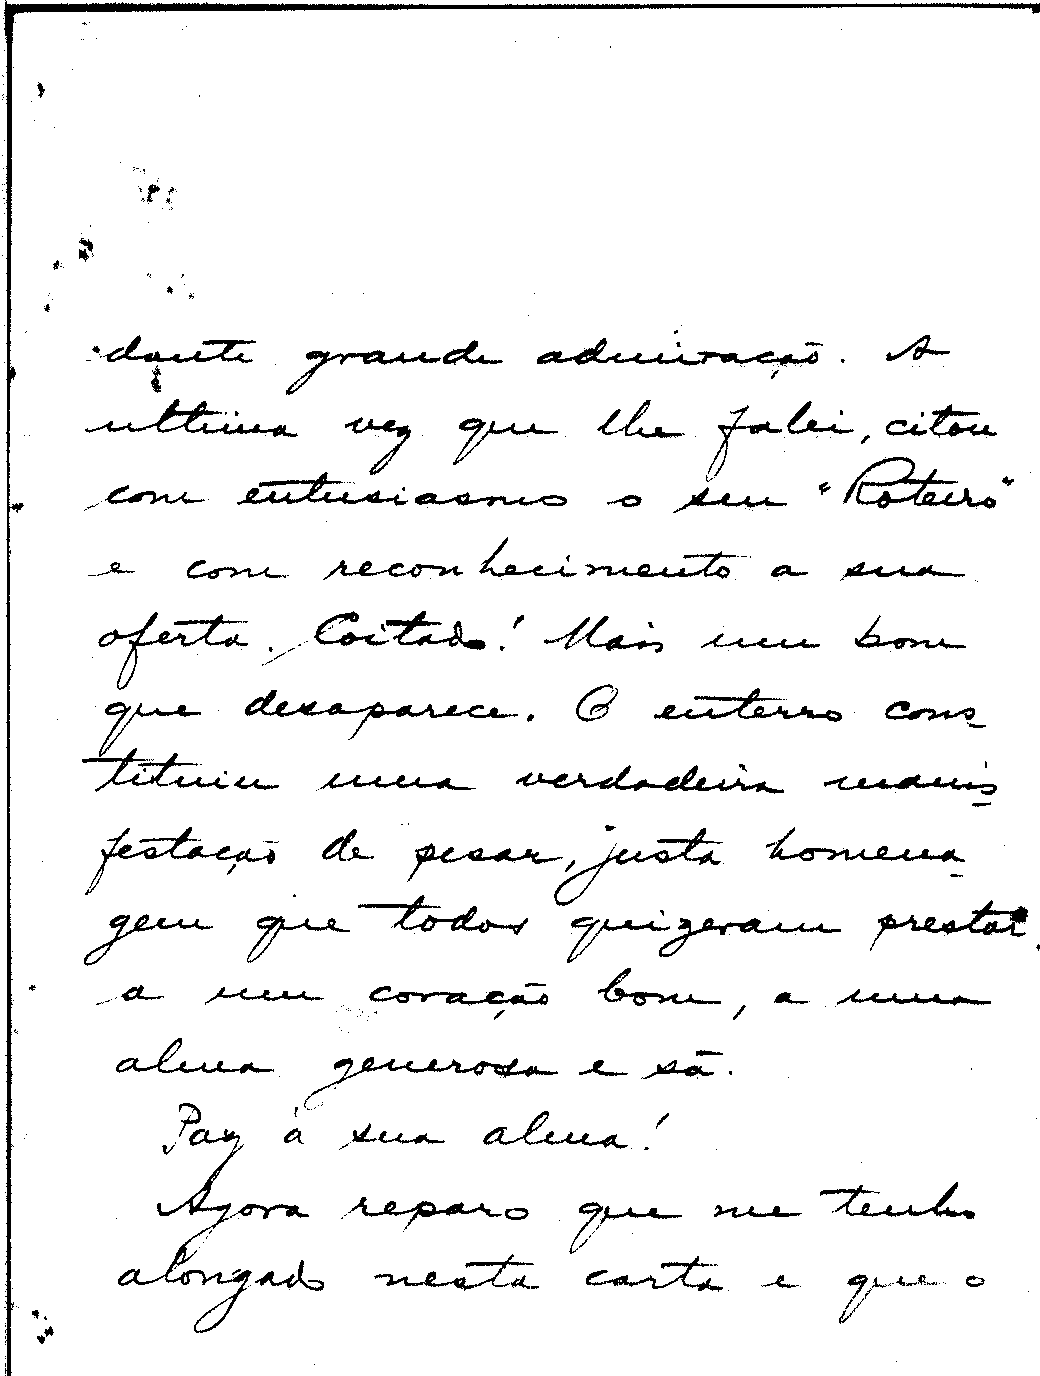 dante grande admiração. A
ultima vez que lhe falei, citou
com entusiasmo o seu "Roteiro"
e com reconhecimento a sua
oferta. Coitado! Mais um bom
que desaparece. O enterro cons-
tituiu uma verdadeira manis-
festação de pesar, justa homena-
gem que todos quizeram prestar
a um coração bom, a uma
alma generosa e sã.
Paz à sua alma!
Agora reparo que me tenho
alongado nesta carta e que o